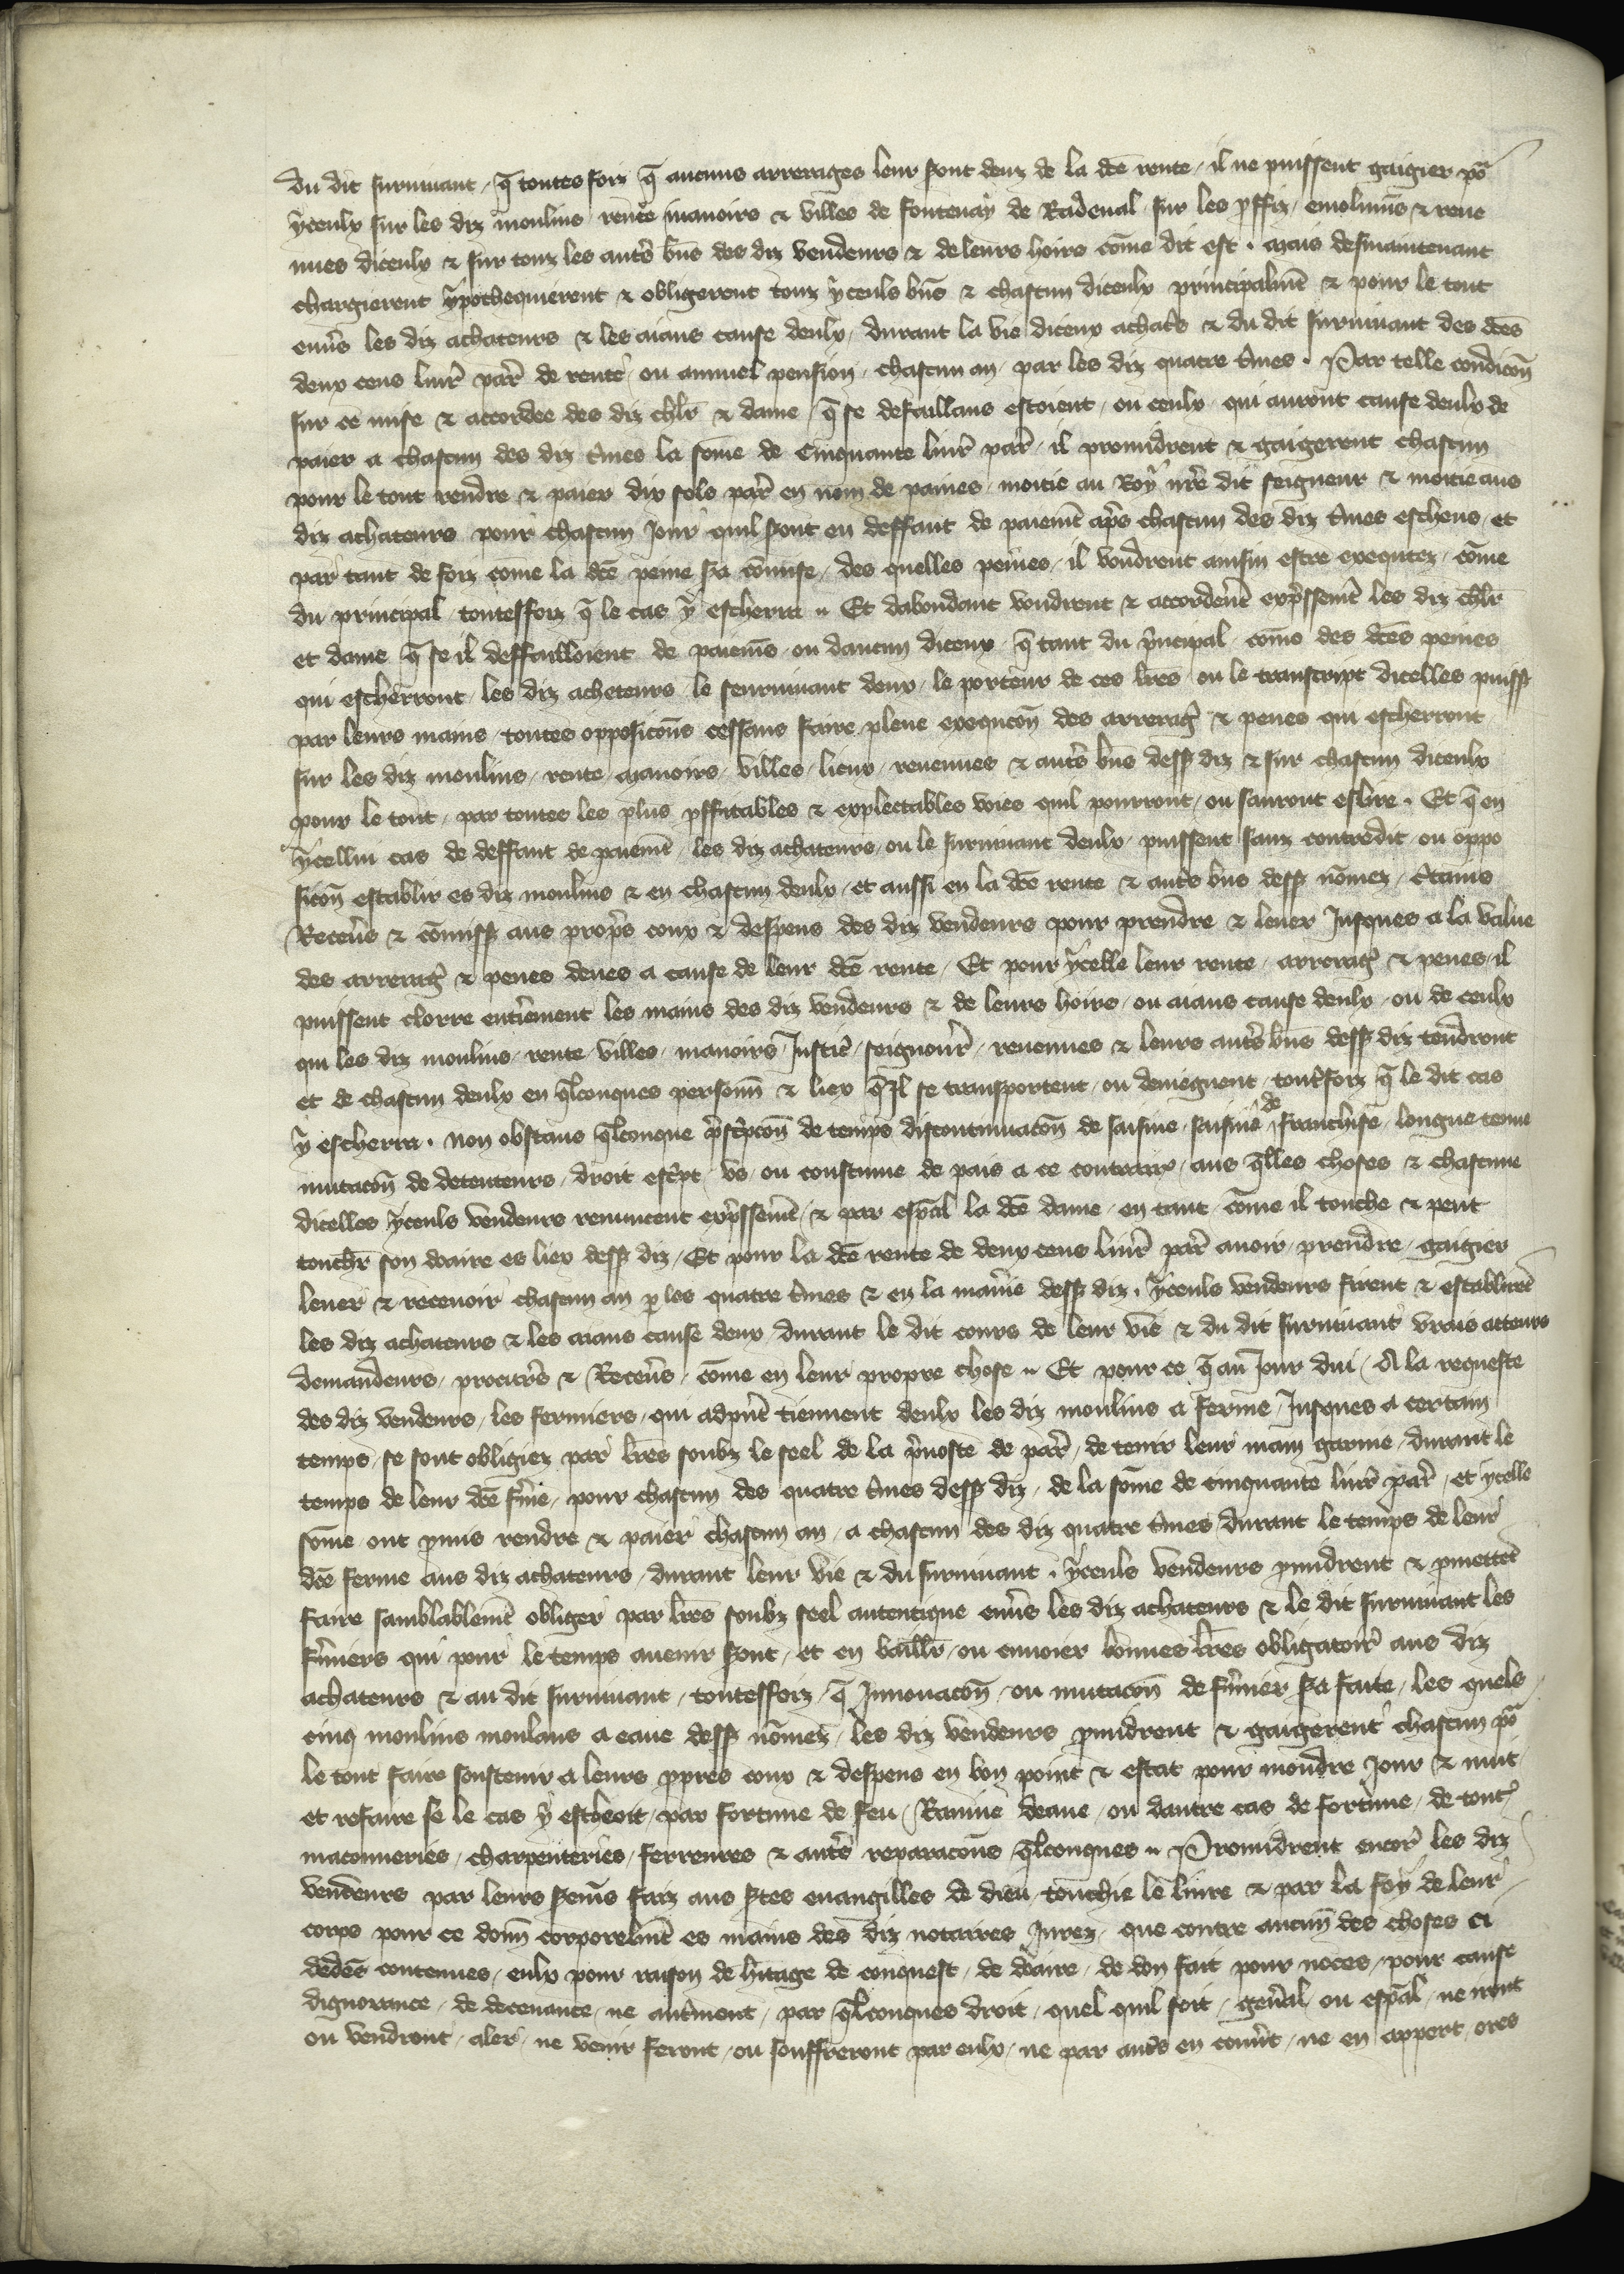 du dit suruiuant / q̄ toutes foiz q̄ aucuns arrerages leur s̄ont deuz de la dc̄e rente / il ne puissent gaigier po᷑
yceulx sur les diz moulins / rente manoirs & villes de fontenay de Radeual / sur les p̄ffiz / emolumēs & reue
nues diceulx & sur touz les autr̄s biēs des diz vendeurs & de leurs hoirs cōme dit est . mais desmaintenant
chargierent ypothequierent & obligerent touz yceuls biēs & chascun diceulx principalmēt & pour le tout
enu̾s les diz achateurs & les aians cause deulx / durant la vie diceux achat̾s & du dit suruiuant des dc̄es
deux cens liur̾ par̾ de rente / ou annuel pension / chascun an / par les diz quatre t̾mes . Par telle condicōn
sur ce mise & accordee des diz chl̄r & dame / q̄ se defaillans estoient / ou ceulx qui auront cause deulx de
paier a chascun des diz t̾mes la sōme de Cinquante liur̾ par̾ / il promidrent & gaigerent chascun
pour le tout rendre & paier dix sols par̾ en nom de paines / moitie au Roy nr̄e dit seigneur & moitie aus
diz achateurs pour chascun Jour quil s̄ont en deffaut de paiemēt ap̄s chascun des diz t̾mes escheus / et
par tant de foiz come la dc̄e peine s̄a cōmise / des quelles peines / il voudrent ainsin estre exequtez / cōme
du principal / toutesfoiz q̄ le cas y escherra .. Et dabondant voudrent & accorderēt exp̄ssemēt les diz chl̄r
et dame q̄ se il deffailloient de paiemēs ou daucun diceux / q̄ tant du p̄ncipal / cōme des dc̄es peines
qui escherront / les diz acheteurs / le seuruiuant deux / le porteur de ces lr̄es / ou le transcript dicelles puiss̄
par leurs mains / toutes opposicōns cessans faire plene exequcōn des arrerag̾ & penes qui escherront
sur les diz moulins / rente / manoirs / villes / lieux / reuenues & autr̄s biēs dess̄ diz & sur chascun diceulx
pour le tout / par toutes les plus p̄ffitables & exploictables voies quil pourront / ou sauront eslire . Et q̄ en
ycellui cas de deffaut de paiemēt / les diz achateurs / ou le suruiuant deulx / puissent sanz contredit / ou oppo
sicōn establir es diz moulins & en chascun deulx / et aussi en la dc̄e rente & autr̄s biēs dess̄ nōmez / c̾tains
Receu̾s & cōmiss̄ aus prop̄s coux & despens des diz vendeurs pour prendre & leuer Jusques a la value
des arrerag̾ & penes deues a cause de leur dc̄e rente / Et pour ycelle leur rente / arrerag̾ & penes / il
puissent clorre enti̾ement les mains des diz vendeurs & de leurs hoirs / ou aians cause deulx / ou de ceulx
qui les diz moulins / rente / villes / manoirs / Justic̾ / seignour̾ / reuenues & leurs autr̄s biēs dess̄ diz tendront
et de chascun deulx en q̄lconques personn̄ & liex q̄ Jl se transportent / ou deuiegnent / tout̾foiz q̄ le dit cas
y escherra . non obstans q̄lconque p̄sc̾pcōn de temps discontinuacōn de saisine / saisine de franchise / longue tenue
mutacōn de detenteurs / droit esc̾pt / vs / ou coustume de pais a ce contraire / aus q̄lles choses & chascune
dicelles yceuls vendeurs renuncent exp̄ssemēt / & par esp̄al la dc̄e dame / en tant / cōme il touche & peut
touch̄r son doaire es liex dess̄ diz / Et pour la dc̄e rente de deux cens liur̾ par̾ auoir / prendre / gaigier
leuer & receuoir chascun an p̱ les quatre t̾mes & en la mani̾e dess̄ diz . yceuls vendeurs firent & establirēt
les diz achateurs & les aians cause deux durant le dit cours de leur vie & du dit suruiuant vrais atteurs
demandeurs / procur̾s & Receu̾s / cōme en leur propre chose .. Et pour ce q̄ au Jour dui / A la requeste
des diz vendeurs / les fermiers / qui adp̄nt tiennent deulx les diz moulins a ferme / Jusques a certain
temps / se sont obligiez par lr̄es soubz le seel de la p̄uoste de par̾ / de tenir leur main garnie / durant le
temps de leur dc̄e f̾me / pour chascun des quatre t̾mes dess̄ diz / de la sōme de cinquante liur̾ par̾ / et ycelle
sōme ont p̱mis rendre & paier chascun an / a chascun des diz quatre t̾mes / durant le temps de leur
dc̄e ferme aus diz achateurs / durant leur vie & du suruiuant . yceuls vendeurs p̱midrent & p̱mettēt
faire samblablemēt obliger par lr̄es soubz seel autentique enu̾s les diz achateurs & le dit suruiuant les
f̾miers qui pour le temps auenir s̄ont / et en baillr̄ / ou enuoier bonnes lr̄es obligatoir̾ aus diz
achateurs & au dit suruiuant / toutesfoiz / q̄ Jnnouacōn / ou mutacōn de f̾mier s̄a faite / les quels
cinq moulins moulans a eaue dess̄ nōmez / les diz vendeurs p̱midrent & gaigerent chascun po᷑
le tout faire soustenir a leurs p̱pres coux & despens en bon point & estat pour mouldre Jour & nuit
et refaire se le cas y escheoit / par fortune de feu / Rauine deaue / ou dautre cas de fortune / de tout̾
maconneries / charpenteries / ferreures & autr̄s reparacōns q̄lconques .. Promidrent encor̾ les diz
vendeurs par leurs s̾emēs faiz aus st̄es euangilles de dieu / touchie le liure & par la foy de leur
corps pour ce donn̄ corporelmēt es mains des diz notaires Jurez / que contre aucun̄ des choses ci
dedēs contenues / eulx pour raison de h̾itage de conquest / de doaire / de don fait pour noces / pour cause
dignorance / de deceuance / ne aut̾ment / par q̄lconques droit / quel quil soit / gen̾al / ou esp̄al / ne iront
ou vendront / aler / ne venir feront / ou souffreront par eulx / ne par autr̄s en couu̾t / ne en appert / ores